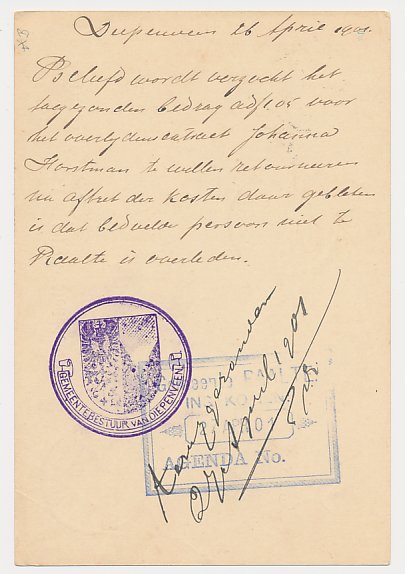 Diepenveen 26 April 1901.
Beleefd wordt verzocht het
toegezonden bedrag ad ƒ 1,05 voor
het overlijdensextract Johanna
Horstman te willen retourneeren
na aftrek der kosten daar gebleken
is dat bedoelde persoon niet te
Raalte is overleden.
GEMEENTEBESTUUR VAN DIEPENVEEN
RAALTE
INGEKOMEN
AGENDA No.
27 April 1901